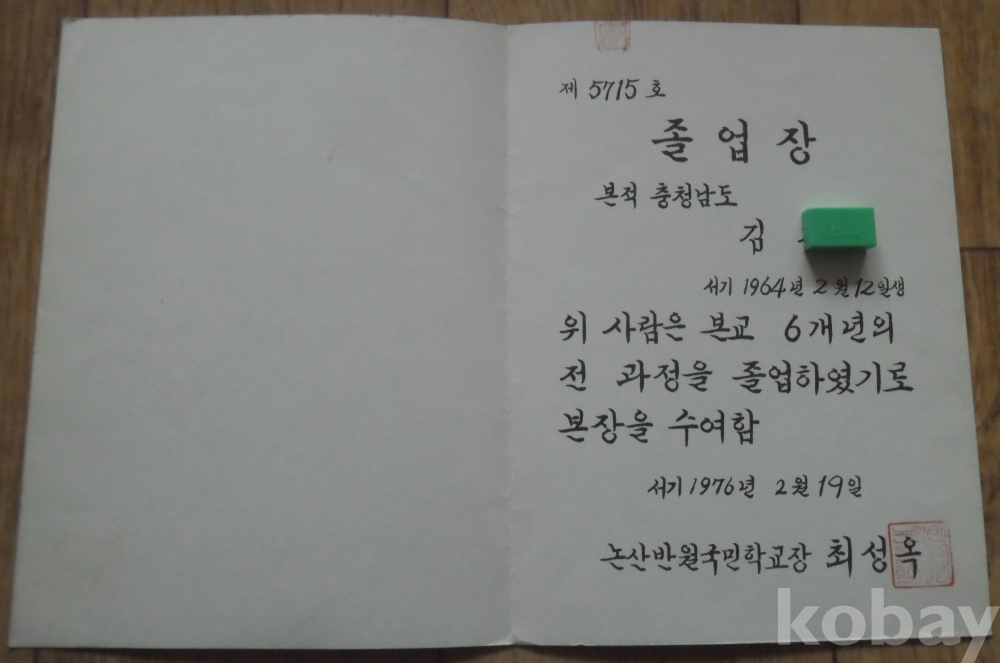 제 5715 호
졸업장
본적 충청남도
김
서기 1964년 2월 12일생
위 사람은 본교 6개년의
전 과정을 졸업하였기로
본장을 수여함
서기 1976년 2월 19일
논산반월국민학교장 최성옥
kobay